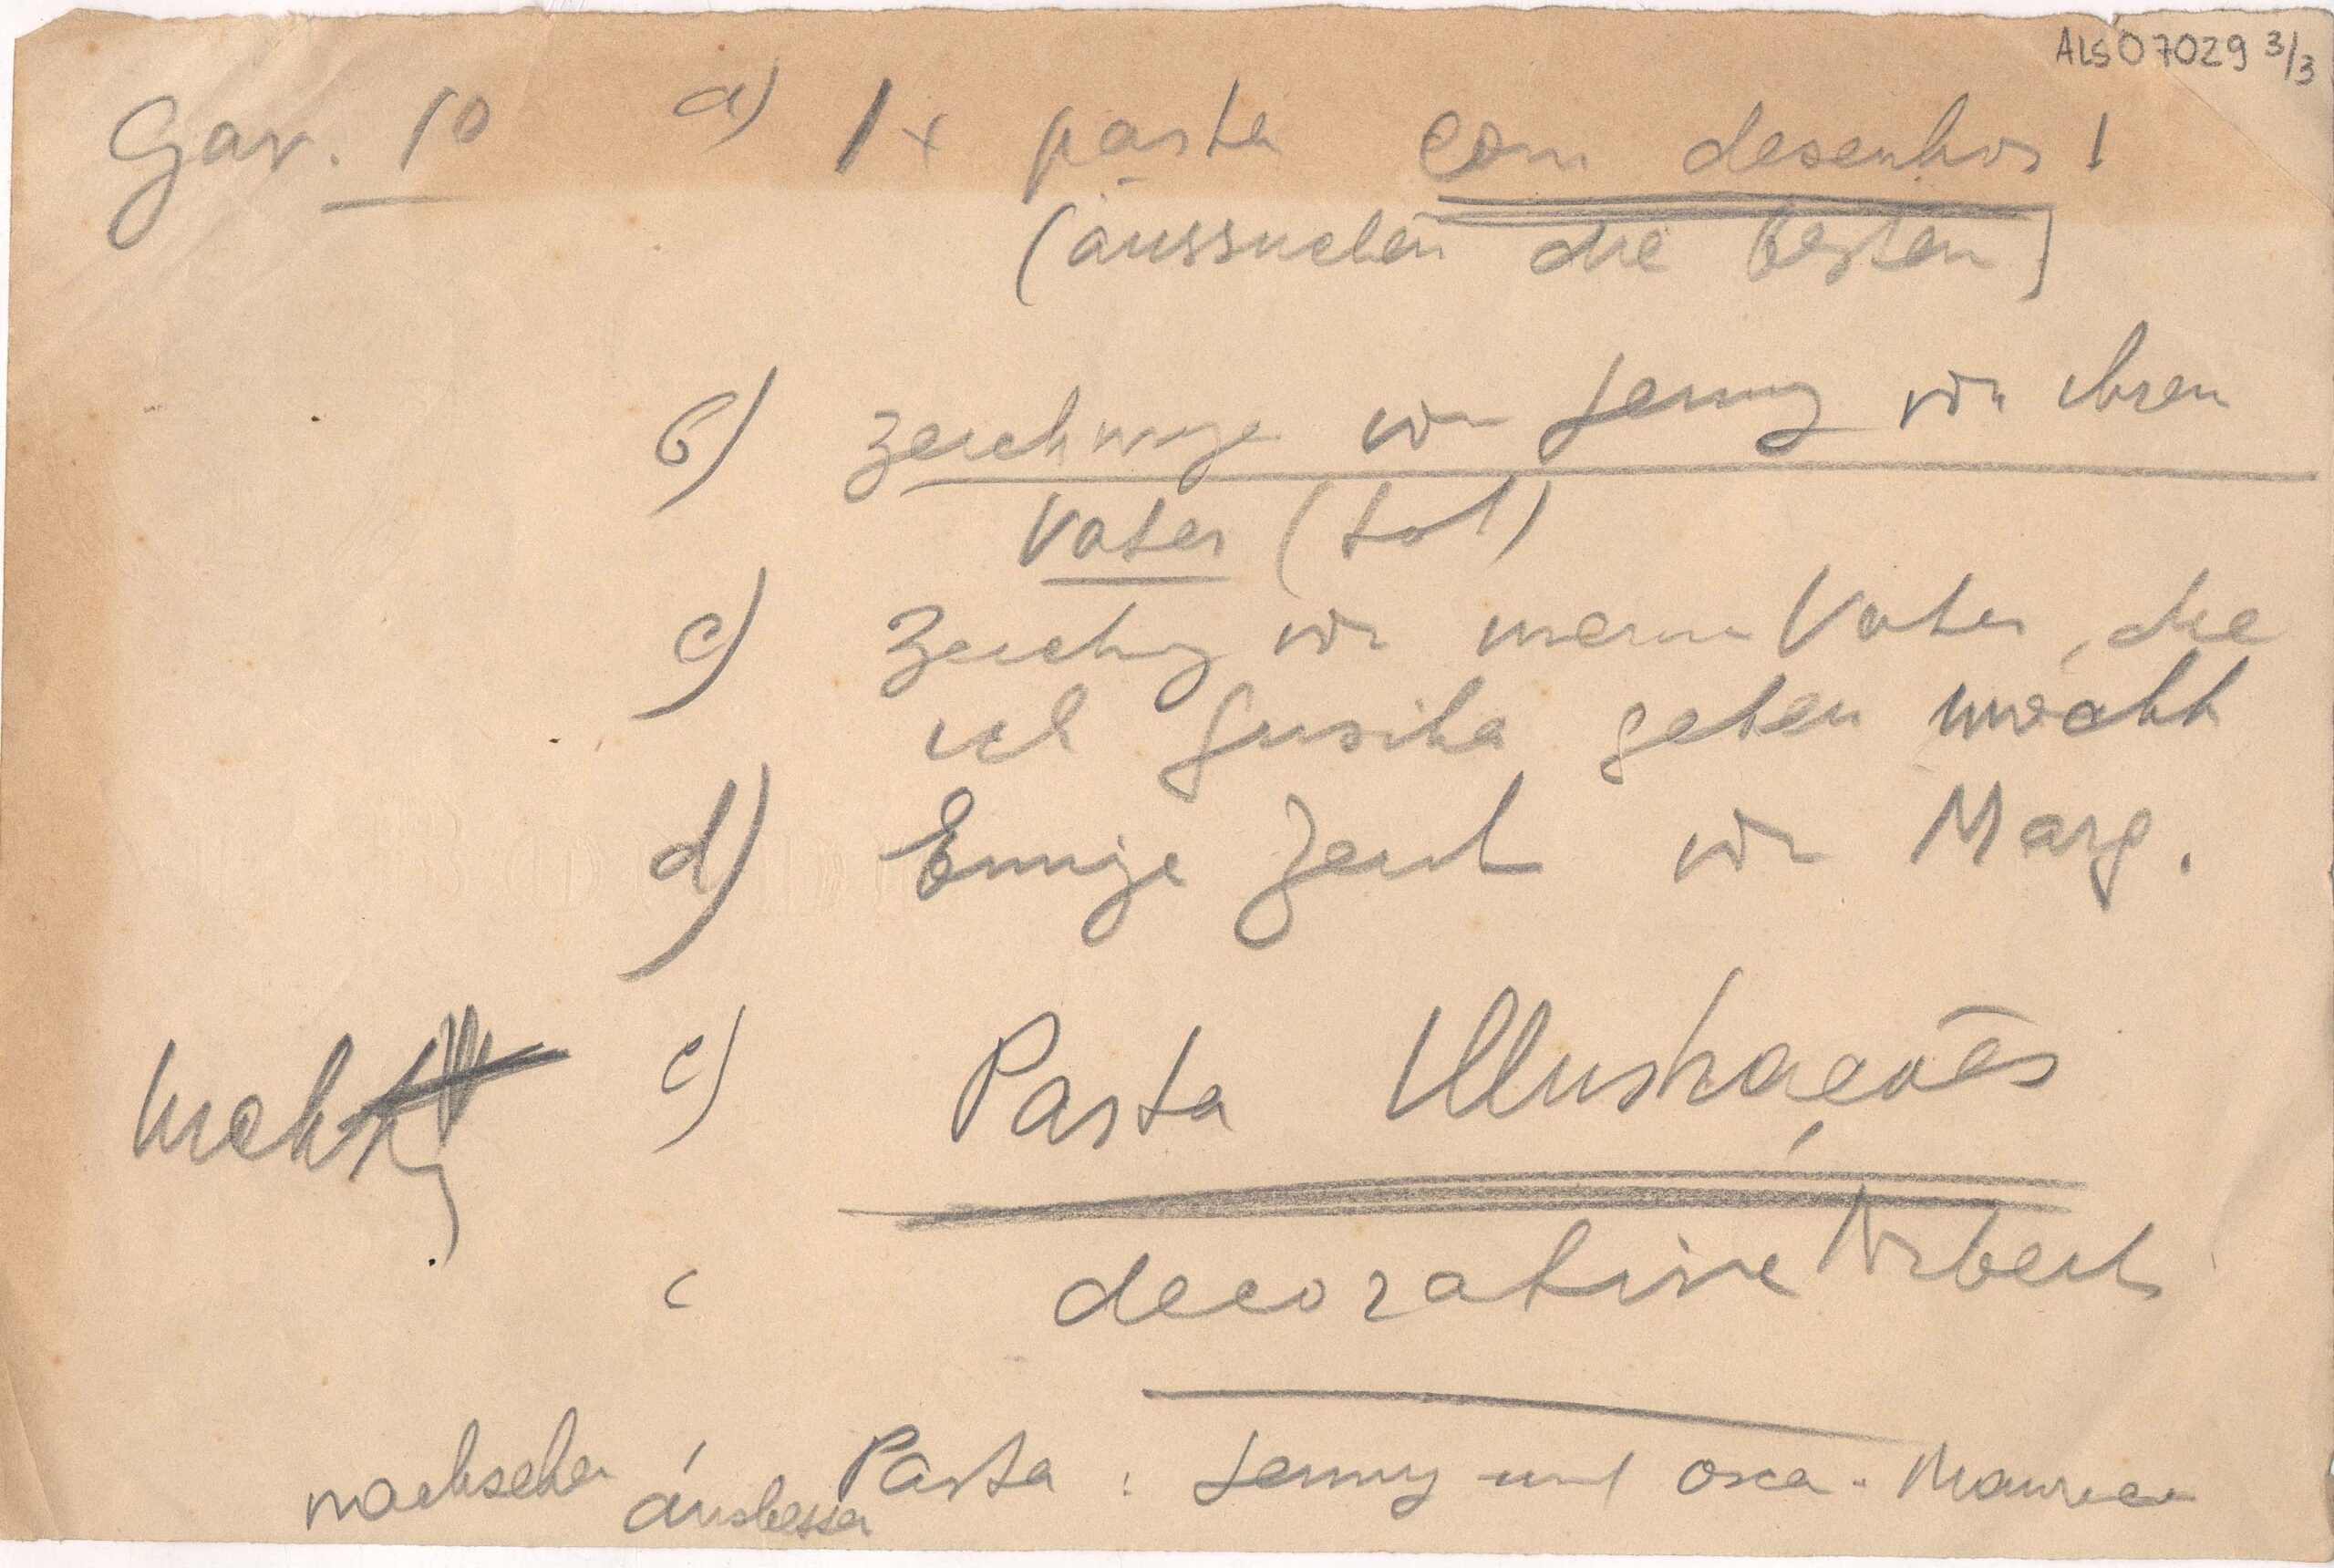 ALS07029 3/3
Gav. 10 a) 1x pasta com desenhos!
(aussuchen die besten)
b) Zeichnunge von Jenny von ihren
Vater (tot)
c) Zeichng von meinem Vater, die
ich Gusika geben möcht
d) Einige Zeich von Marg.
e) Pasta Illustrações
decorative Arbeit
nachsehen Pasta : Jenny und Osca.
ausbessern